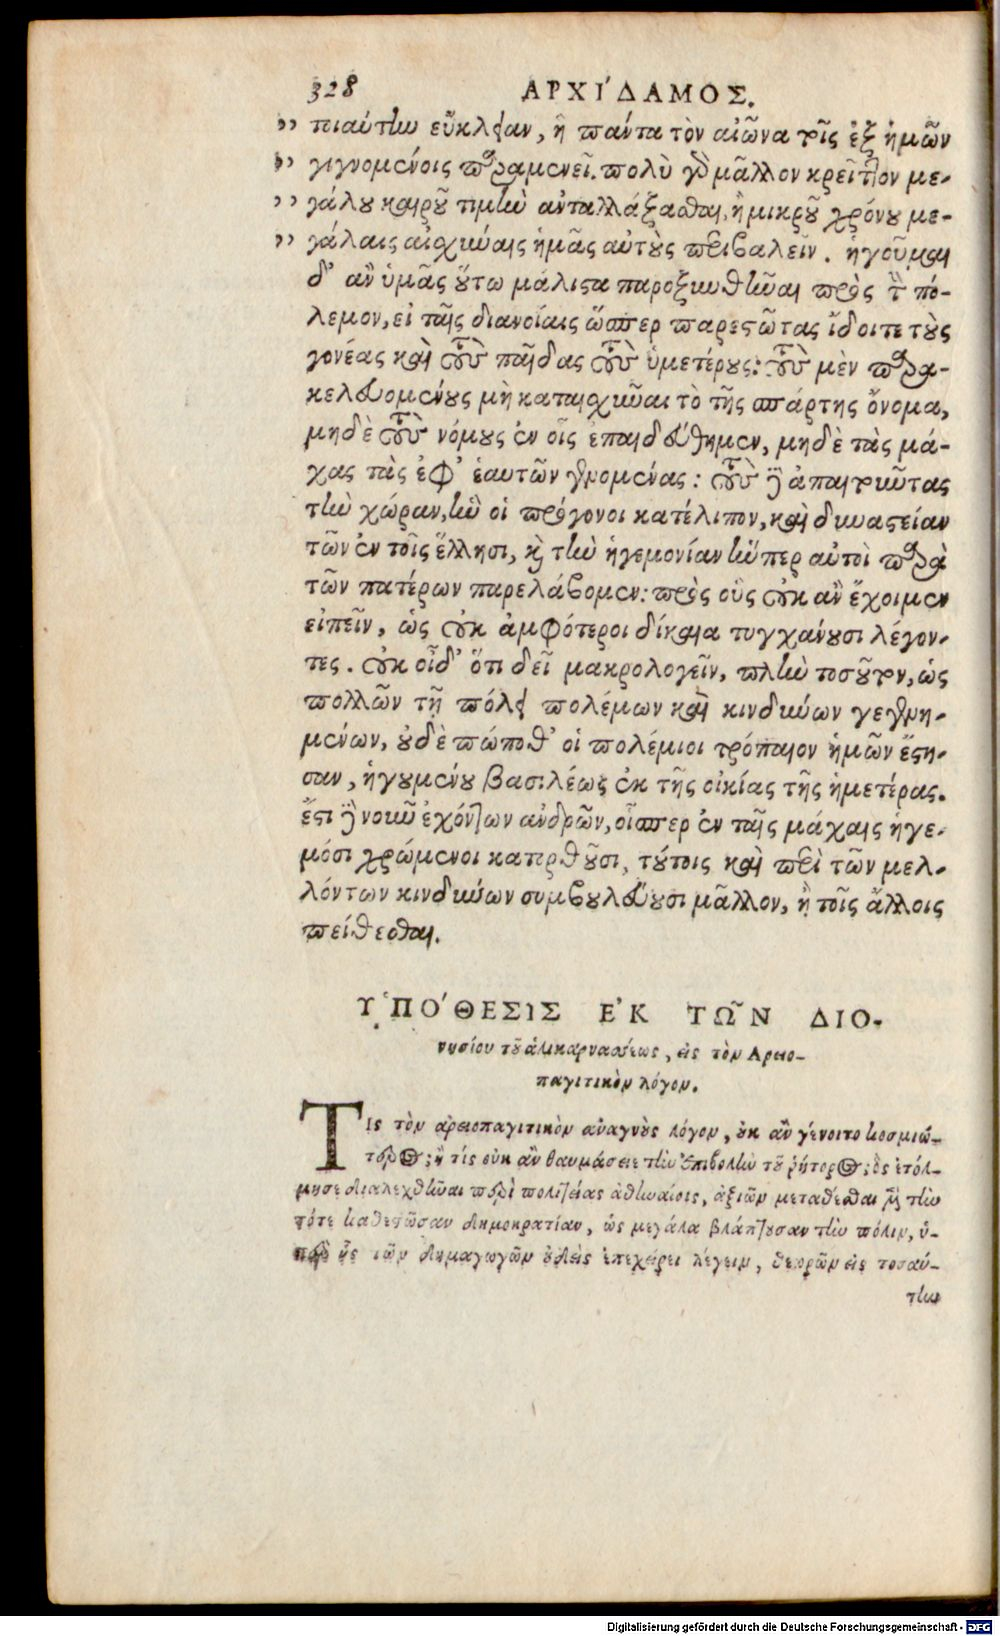 328 ΑΡΧΙ´ΔΑΜΟΣ.
„ τοιαύτην εὔκλειαν, ἣ πάντα τὸν αἰῶνα τοῖς ἐξ ἡμῶν
„ γιγνομένοις παραμενεῖ. πολὺ γὰρ μᾶλλον κρεῖττον με-
„ γάλου καιροῦ τιμὴν ἀνταλλάξασθαι, ἢ μικροῦ χρόνου με-
„ γάλαις αἰσχύναις ἡμᾶς αὐτοὺς περιβαλεῖν. ἡγοῦμαι
δ' ἂν ὑμᾶς οὕτω μάλιστα παροξυνθῆναι πρὸς τὸν πό-
λεμον, εἰ ταῖς διανοίαις ὥσπερ παρεστῶτας ἴδοιτε τοὺς
γονέας καὶ τοὺς παῖδας τοὺς ὑμετέρους: τοὺς μὲν παρα-
κελευομένους μὴ καταισχῦναι τὸ τῆς σπάρτης ὄνομα,
μηδὲ τοὺς νόμους ἐν οἷς ἐπαιδεύθημεν, μηδὲ τὰς μά-
χας τὰς ἐφ' ἑαυτῶν γενομένας: τοὺς δὲ ἀπαιτοῦντας
τὴν χώραν, ἣν οἱ πρόγονοι κατέλιπον, καὶ δυναστείαν
τῶν ἐν τοῖς ἕλλησι, καὶ τὴν ἡγεμονίαν ἥνπερ αὐτοὶ παρὰ
τῶν πατέρων παρελάβομεν: πρὸς οὓς οὐκ ἂν ἔχοιμεν
εἰπεῖν, ὡς οὐκ ἀμφότεροι δίκαια τυγχάνουσι λέγον-
τες. οὐκ οἶδ' ὅτι δεῖ μακρολογεῖν, πλὴν τοσοῦτον, ὡς
πολλῶν τῇ πόλει πολέμων καὶ κινδύνων γεγενη-
μένων, οὐδὲ πώποθ' οἱ πολέμιοι τρόπαιον ἡμῶν ἔστη-
σαν, ἡγουμένου βασιλέως ἐκ τῆς οἰκίας τῆς ἡμετέρας.
ἔστι δὲ νοῦν ἐχόντων ἀνδρῶν, οἷσπερ ἐν ταῖς μάχαις ἡγε-
μόσι χρώμενοι κατορθοῦσι, τούτοις καὶ περὶ τῶν μελ-
λόντων κινδύνων συμβουλεύουσι μᾶλλον, ἢ τοῖς ἄλλοις
πείθεσθαι.
ΥΠΟ´ΘΕΣΙΣ ΕΚ ΤΩ͂Ν ΔΙΟ-
νυσίου τοῦ ἁλικαρνασέως, εἰς τὸν Αρειο-
παγιτικὸν λόγον.
ΤΙς τὸν ἀρειοπαγιτικὸν ἀναγνοὺς λόγον, οὐκ ἂν γένοιτο κοσμιώ-
τερος; ἢ τίς οὐκ ἂν θαυμάσειε τὴν ἐπιβολὴν τοῦ ῥήτορος; ὃς ἐτόλ-
μησε διαλεχθῆναι περὶ πολιτείας ἀθηναίοις, ἀξιῶν μεταθέσθαι μὲν τὴν
τότε καθεστῶσαν δημοκρατίαν, ὡς μεγάλα βλάπτουσαν τὴν πόλιν, ὑ-
πὲρ ἧς τῶν δημαγωγῶν οὐδεὶς ἐπεχείρει λέγειν, θεωρῶν εἰς τοσαύ-
την
Digitalisierung gefördert durch die Deutsche Forschungsgemeinschaft - DFG